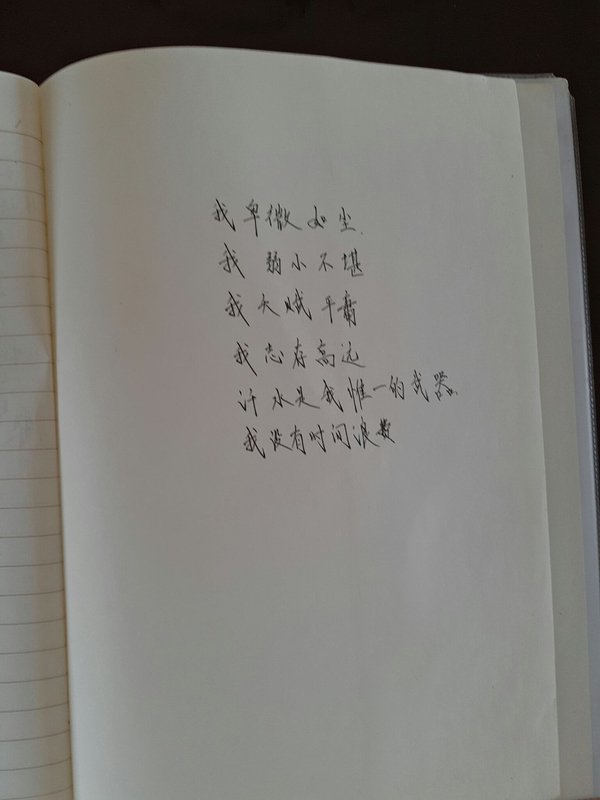 我卑微如尘.
我弱小不堪
我天赋平庸
我志存高远
汗水是我惟一的武器
我没有时间浪费